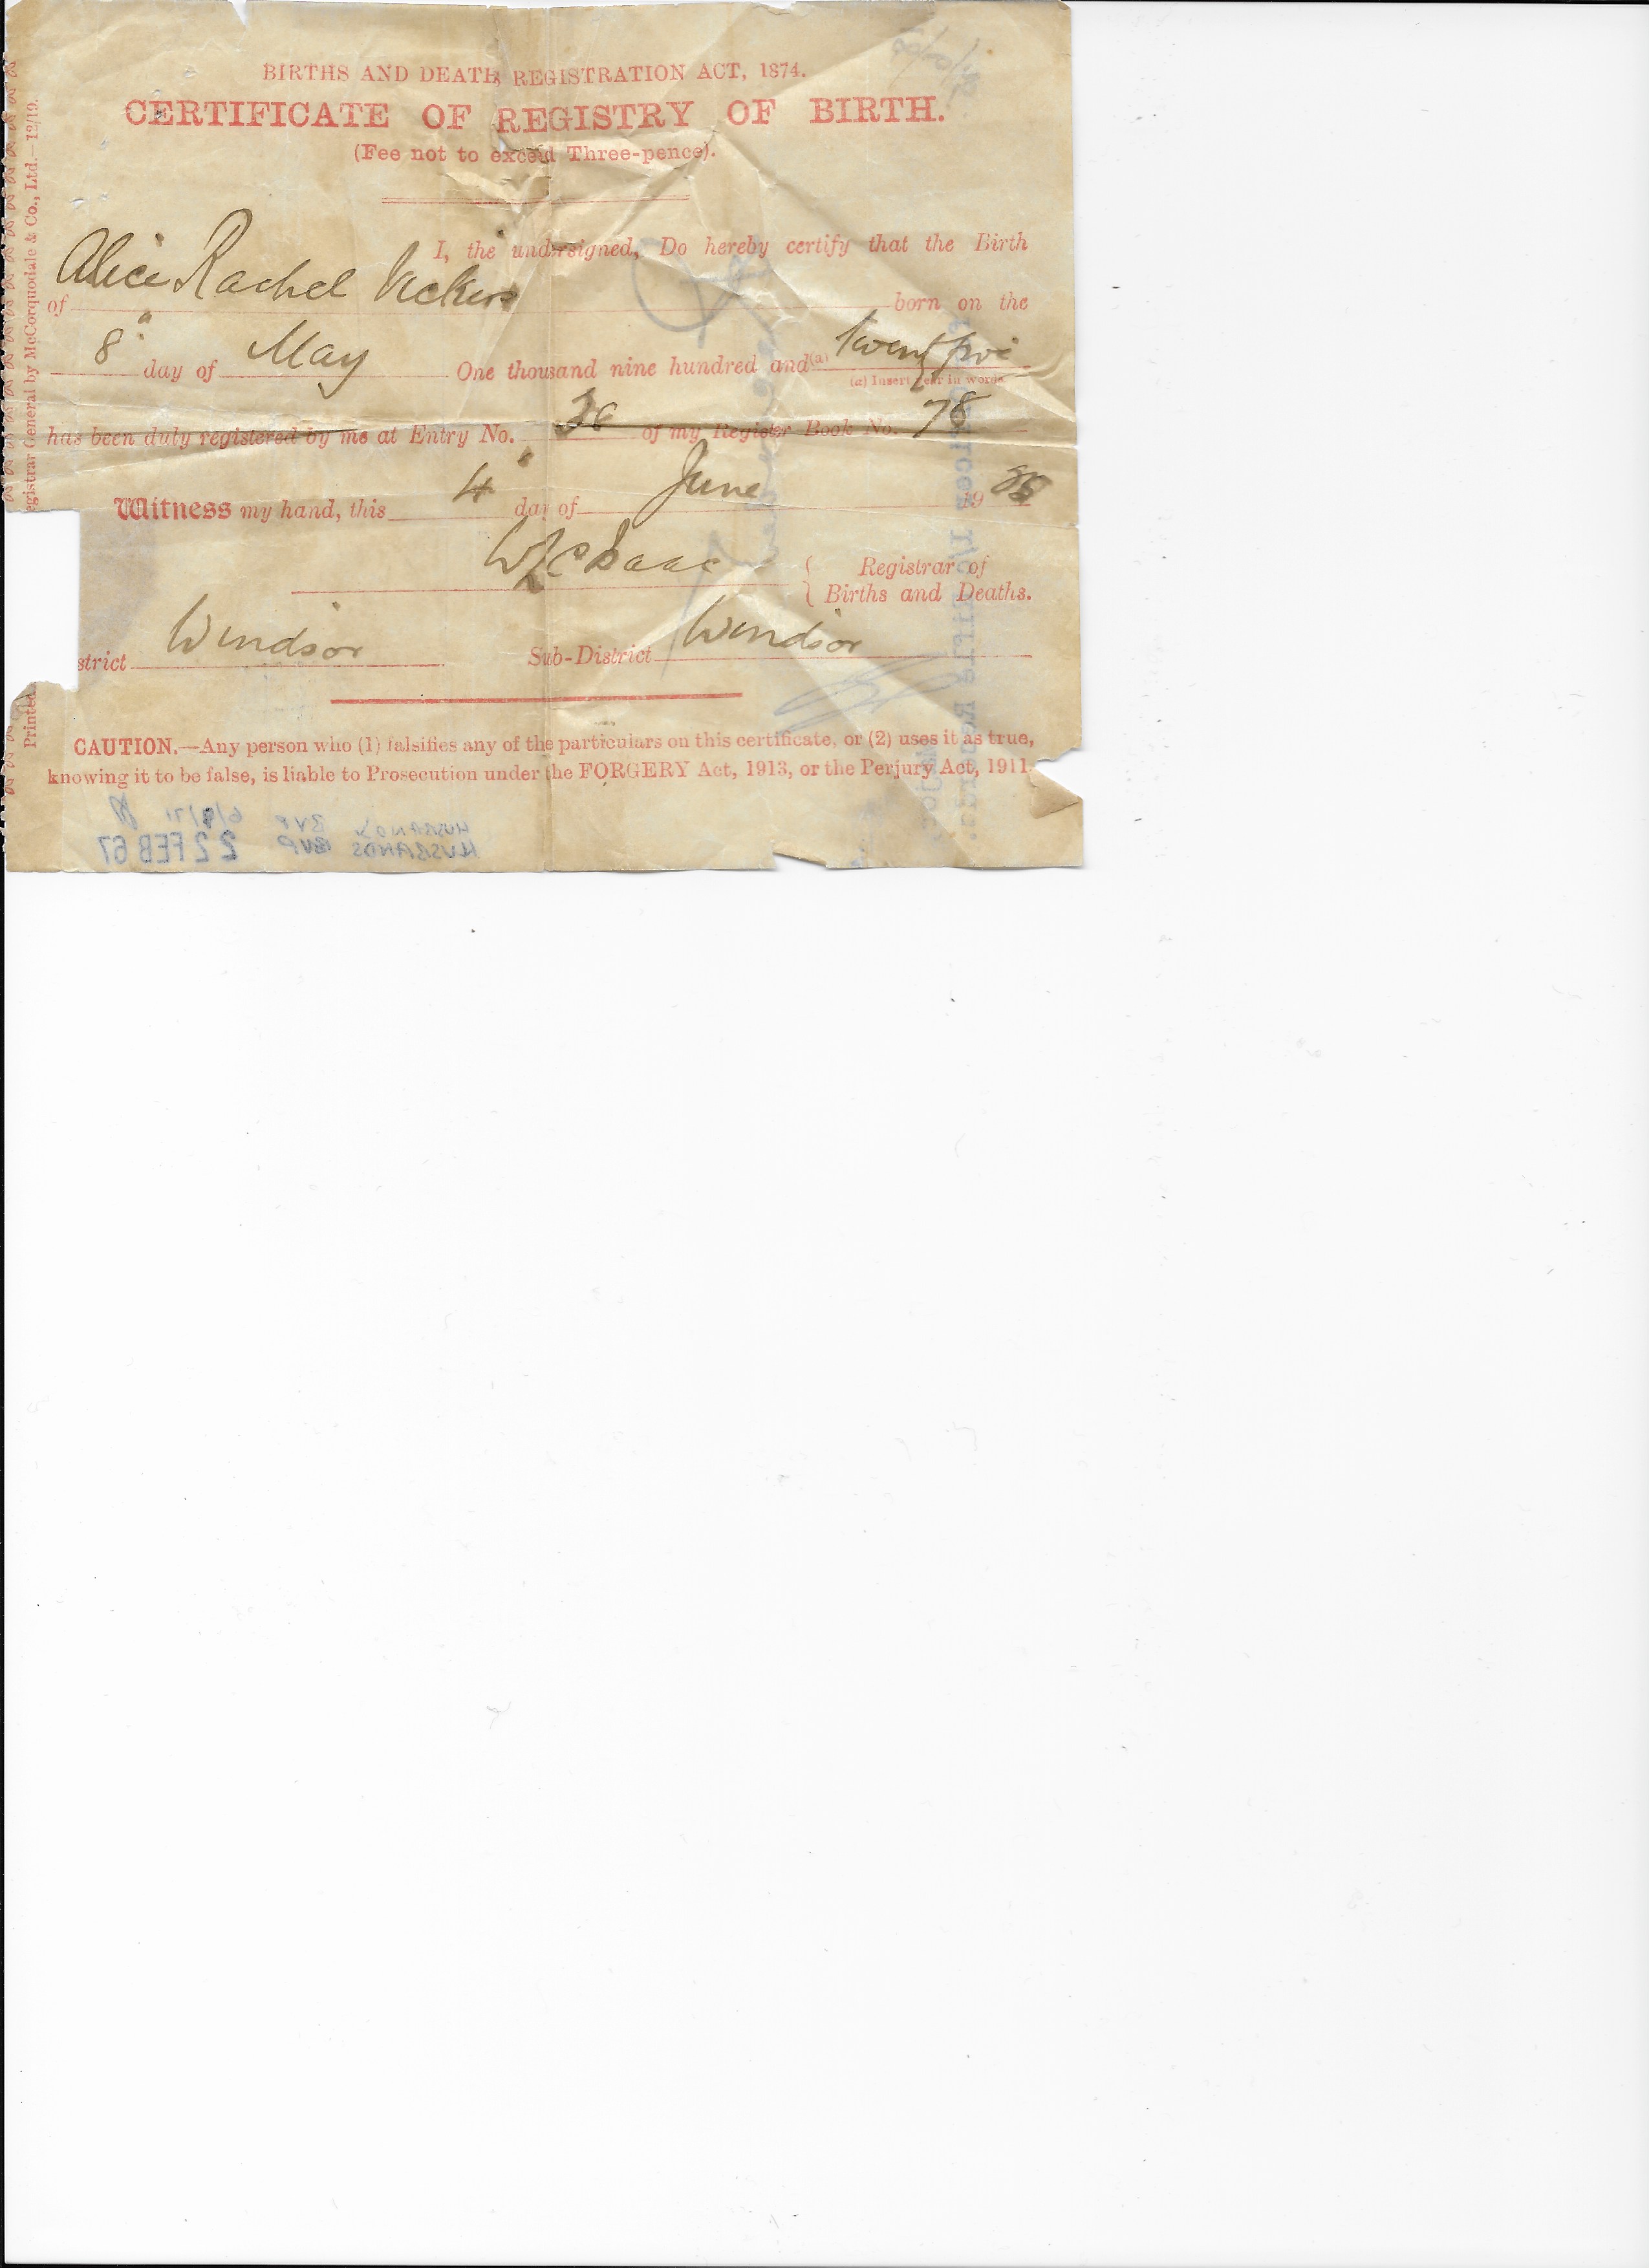 BIRTHS AND DEATHS REGISTRATION ACT, 1874.
CERTIFICATE OF REGISTRY OF BIRTH.
(Fee not to exceed Three-pence).
I, the undersigned, Do hereby certify that the Birth
of Alice Rachel Vickers born on the
8" day of May One thousand nine hundred and (a) twenty five
(a) Insert year in words.
has been duly registered by me at Entry No. 36 of my Register Book No. 78
Witness my hand, this 4" day of June 19 25
Registrar of
Births and Deaths.
strict Windsor Sub-District Windsor
CAUTION.—Any person who (1) falsifies any of the particulars on this certificate, or (2) uses it as true,
knowing it to be false, is liable to Prosecution under the FORGERY Act, 1913, or the Perjury Act, 1911
HUSBANDS BVP 6/9/71
HUSBANDS BVP 22 FEB 67
Printed
egistrar General by McCorquodale & Co., Ltd.—12/19.